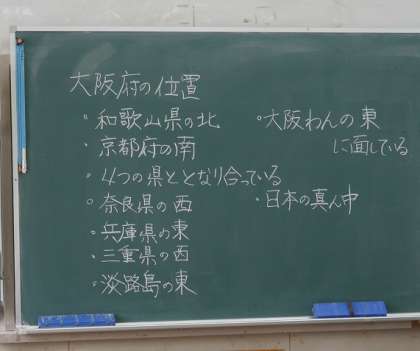 大阪府の位置
・和歌山県の北
・京都府の南
・4つの県ととなり合っている
・奈良県の西
・兵庫県の東
・三重県の西
・淡路島の東
・大阪わんの東
に面している
・日本の真ん中